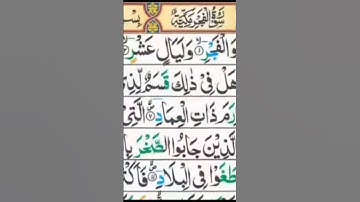 سُوْرَةُ الْفَجْرِ مَكِّيَّةٌ بِسْـ
وَالْفَجْرِ ۙ﴿۱﴾ وَلَيَالٍ عَشْرٍ ۙ
هَلْ فِيْ ذٰلِكَ قَسَمٌ لِّذِيْ
اِرَمَ ذَاتِ الْعِمَادِ ۪ۙ﴿۷﴾ الَّتِيْ
الَّذِيْنَ جَابُوا الصَّخْرَ بِالْـ
طَغَوْا فِي الْبِلَادِ ۪ۙ﴿۱۱﴾ فَاَكْثَـ